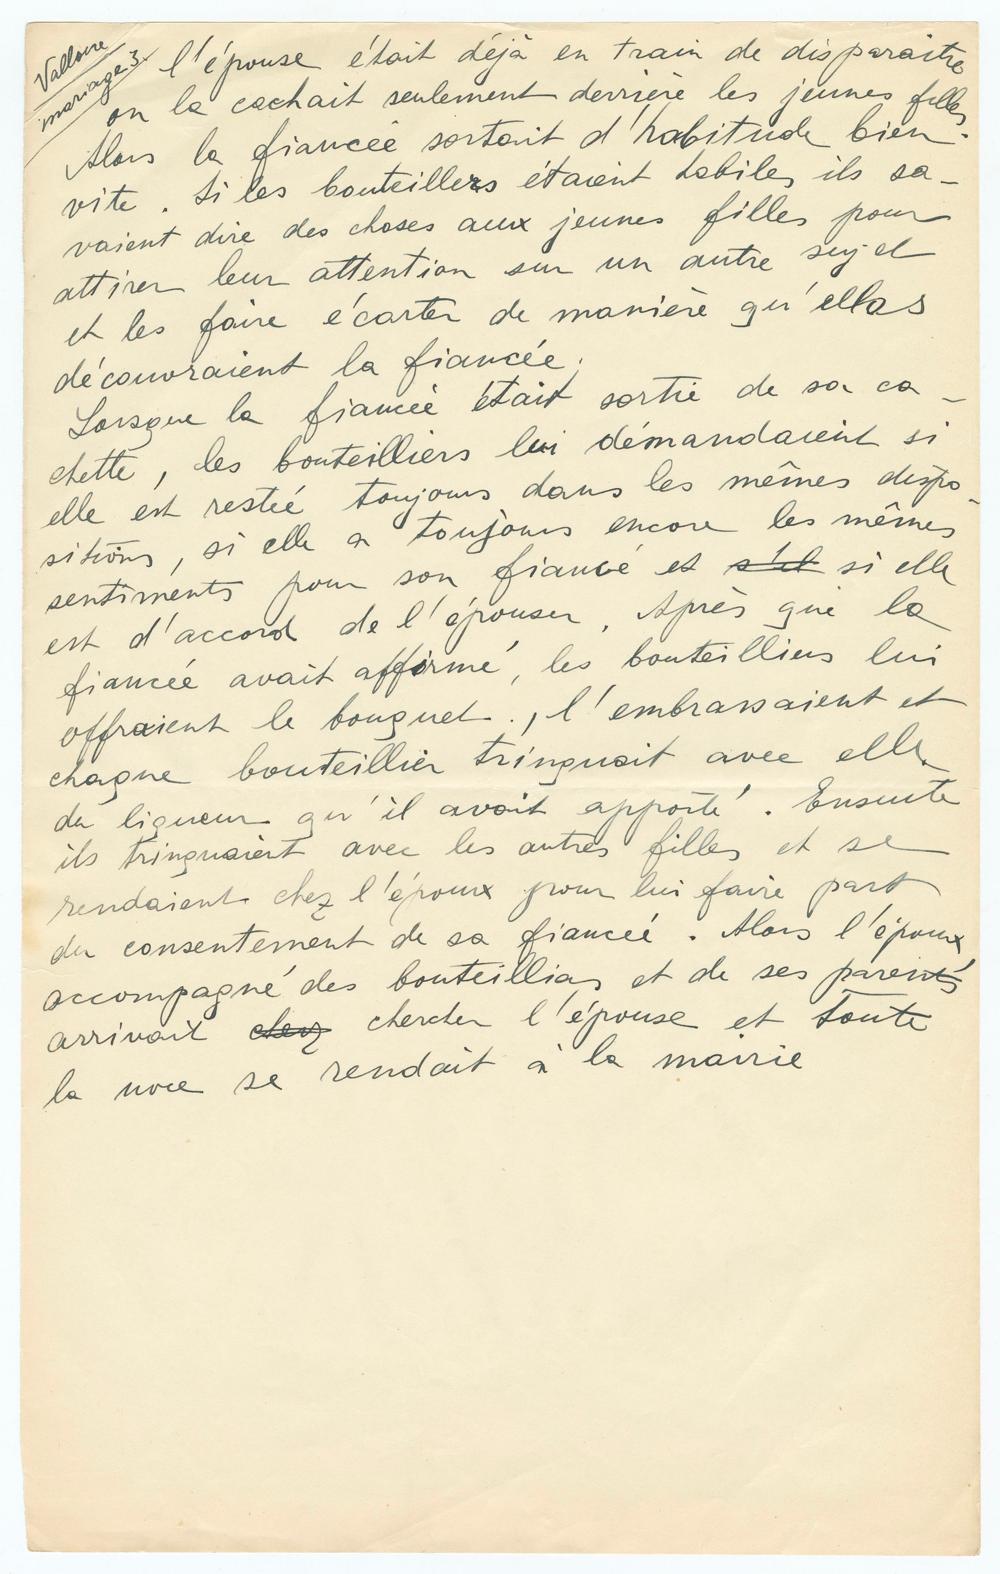 Valloire
mariage 3.
l'épouse était déjà en train de disparaître
on la cachait seulement derrière les jeunes filles.
Alors la fiancée sortait d'habitude bien
vite. Si les bouteillers étaient habiles, ils sa-
vaient dire des choses aux jeunes filles pour
attirer leur attention sur un autre sujet
et les faire écarter de manière qu'elles
découvraient la fiancée.
Lorsque la fiancée était sortie de sa ca-
chette, les bouteilliers lui démandaient si
elle est restée toujours dans les mêmes dispo-
sitions, si elle a toujours encore les mêmes
sentiments pour son fiancé et s'il si elle
est d'accord de l'épouser. Après que la
fiancée avait affirmé, les bouteilliers lui
offraient le bouquet., l'embrassaient et
chaque bouteillier tringuait avec elle
du liqueur qu'il avait apporté. Ensuite
ils tringuaient avec les autres filles et se
rendaient chez l'époux pour lui faire part
du consentement de sa fiancée. Alors l'époux
accompagné des bouteilliers et de ses parents
arrivait chez chercher l'épouse et toute
la noce se rendait à la mairie